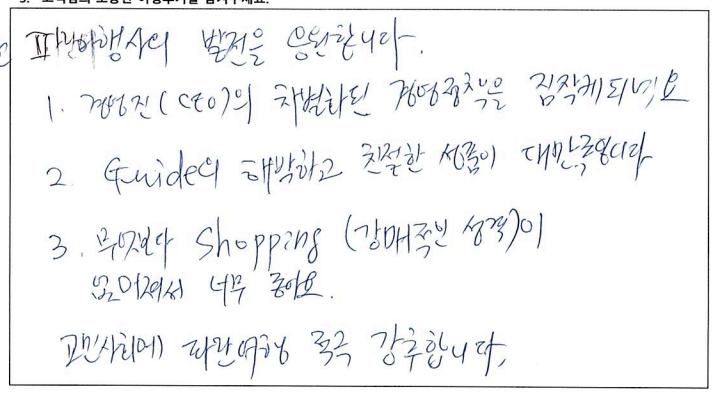 파란여행사의 발전을 응원합니다.
1. 경영진(CEO)의 차별화된 경영정책을 짐작케되네요
2. Guide의 해박하고 친절한 성품이 대만족입니다
3. 무엇보다 Shopping (강매적인 성격)이
없어져서 너무 좋아요.
교민사회에 파란여행 적극 강추합니다,